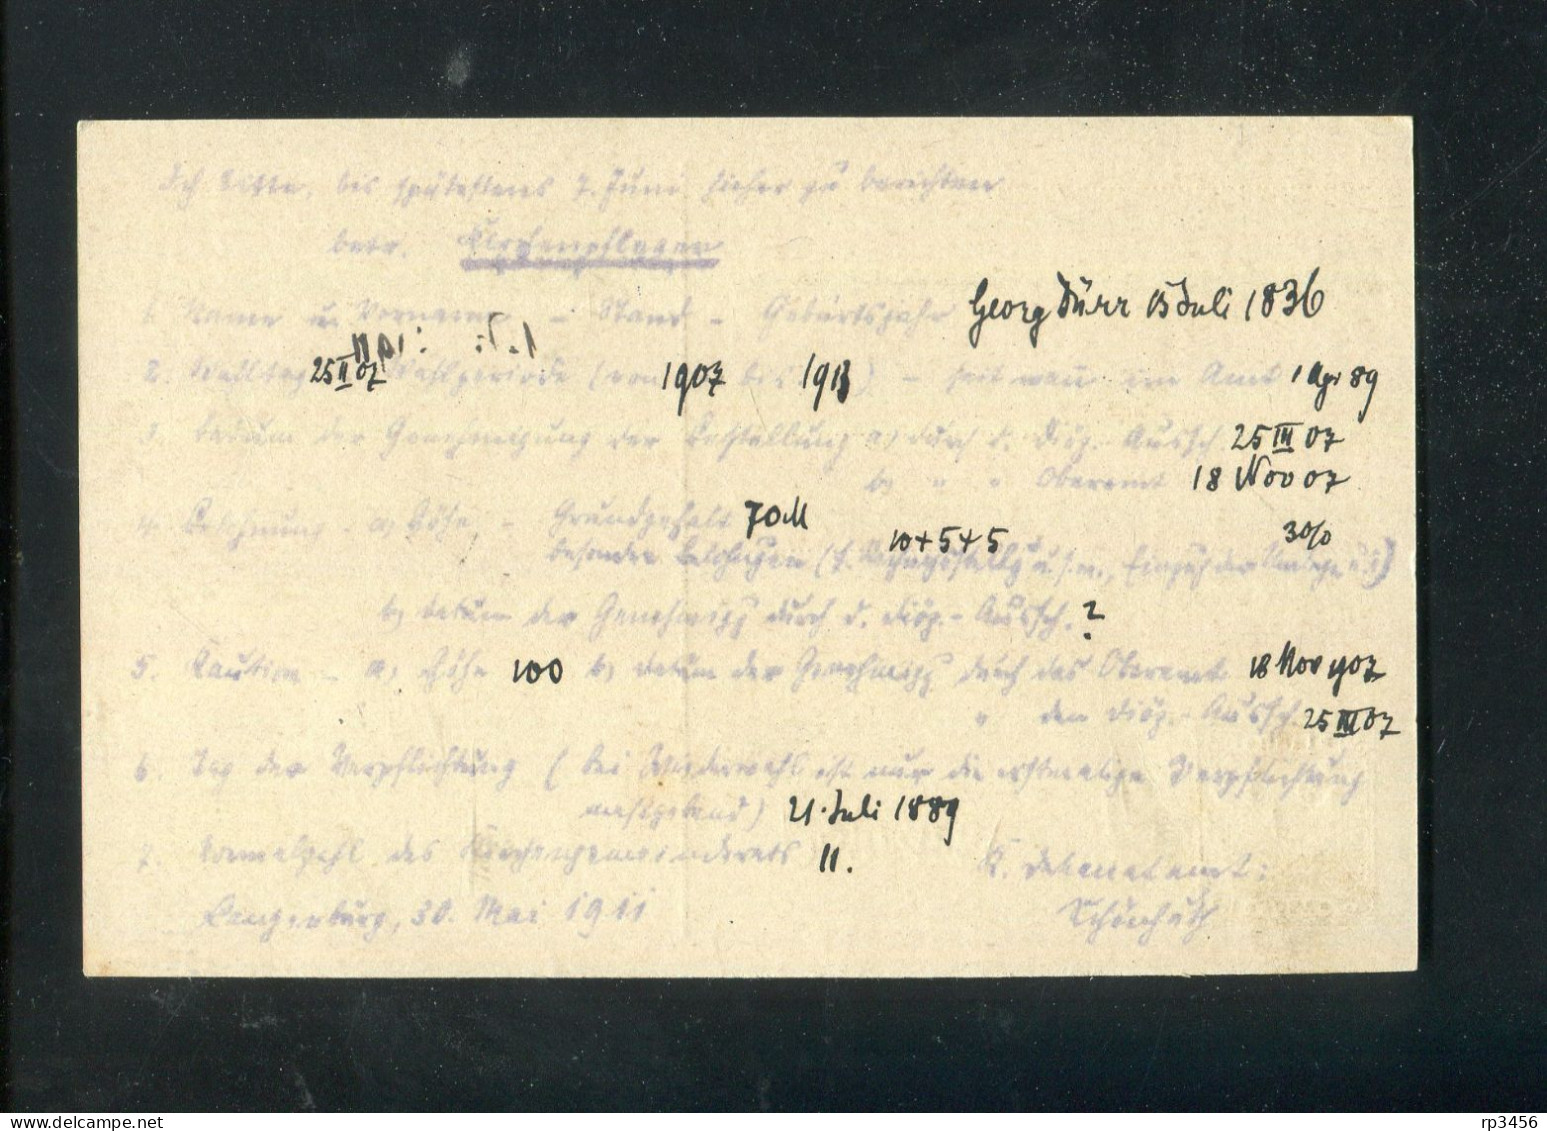 Ich bitte, bis spätestens 7. Juni hieher zu berichten
betr. Kirchenpfleger
1. Name u. Vorname - Stand - Geburtsjahr Georg Dürr 15 Juli 1836
2. Wahltag 25 II 07 Wahlperiode (von 1907 bis 1913) - seit wann im Amt 1 Apr 89
3. Datum der Genehmigung der Bestellung a) durch d. Diöz.-Aussch. 25 III 07
b) " " Oberamt 18 Nov 07
4. Belohnung - a) Höhe - Grundgehalt 70 M
10+5+5 3%
besondere Belohnungen (f. u.s.w., Einzug der Umlage u.s.)
b) Datum der Genehmigg durch d. Diöz.-Aussch. ?
5. Kaution - a) Höhe 100 b) Datum der Genehmigg durch das Oberamt 18 Nov 1907
" den Diöz.-Aussch. 25 III 07
6. Tag der Verpflichtung (bei Wiederwahl ist nur die erstmalige Verpflichtung
maßgebend) 21. Juli 1889
7. Normalzahl des Kirchengemeinderats 11.
K. Dekanatamt:
Langenburg, 30. Mai 1911
Schönhuth
rp3456